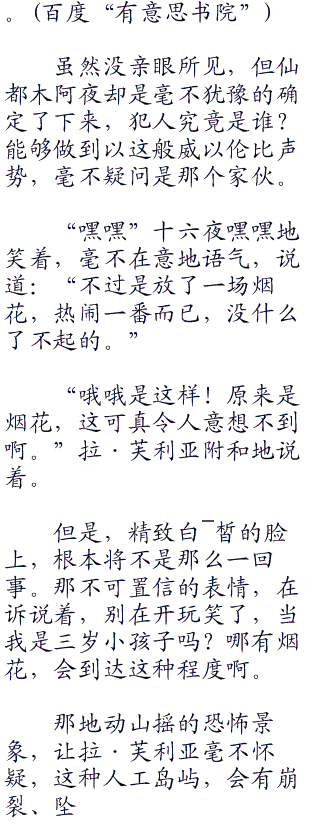 。(百度“有意思书院”)
虽然没亲眼所见，但仙
都木阿夜却是毫不犹豫的确
定了下来，犯人究竟是谁？
能够做到以这般威以伦比声
势，毫不疑问是那个家伙。
“嘿嘿”十六夜嘿嘿地
笑着，毫不在意地语气，说
道：“不过是放了一场烟
花，热闹一番而已，没什么
了不起的。”
“哦哦是这样！原来是
烟花，这可真令人意想不到
啊。”拉·芙利亚附和地说
着。
但是，精致白¯皙的脸
上，根本将不是那么一回
事。那不可置信的表情，在
诉说着，别在开玩笑了，当
我是三岁小孩子吗？哪有烟
花，会到达这种程度啊。
那地动山摇的恐怖景
象，让拉·芙利亚毫不怀
疑，这种人工岛屿，会有崩
裂、坠